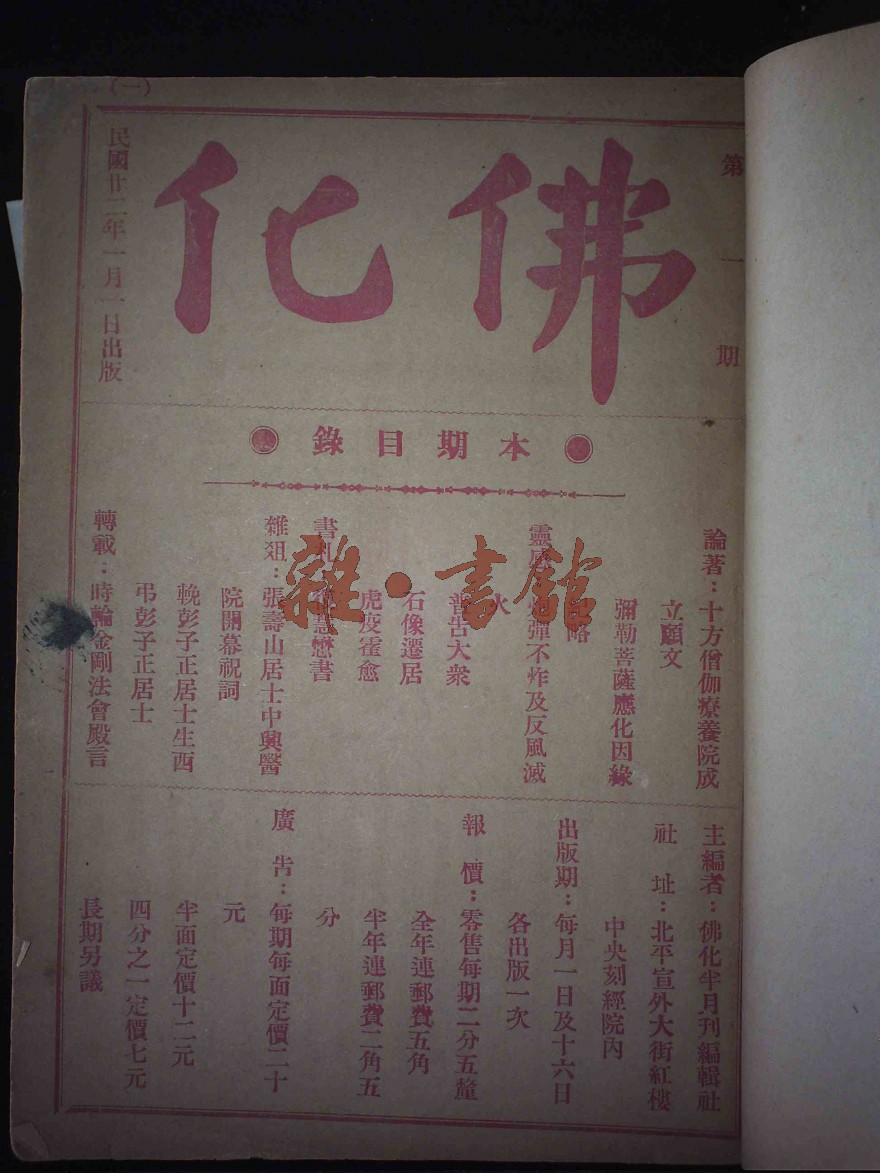 （一）
第一期
佛化
民國廿二年一月一日出版
本期目錄
論著：十方僧伽療養院成
立願文
彌勒菩薩應化因緣
略
靈感：炮彈不炸及反風滅
火
普告大衆
石像遷居
虎疫霍愈
書札：慧懋書
雜俎：張壽山居士中興醫
院開幕祝詞
輓彭子正居士生西
弔彭子正居士
轉載：時輪金剛法會殿言
雜·書館
主編者：佛化半月刊編輯社
社址：北平宣外大街紅樓
中央刻經院內
出版期：每月一日及十六日
各出版一次
報價：零售每期二分五釐
全年連郵費五角
半年連郵費二角五
分
廣告：每期每面定價二十
元
半面定價十二元
四分之一定價七元
長期另議